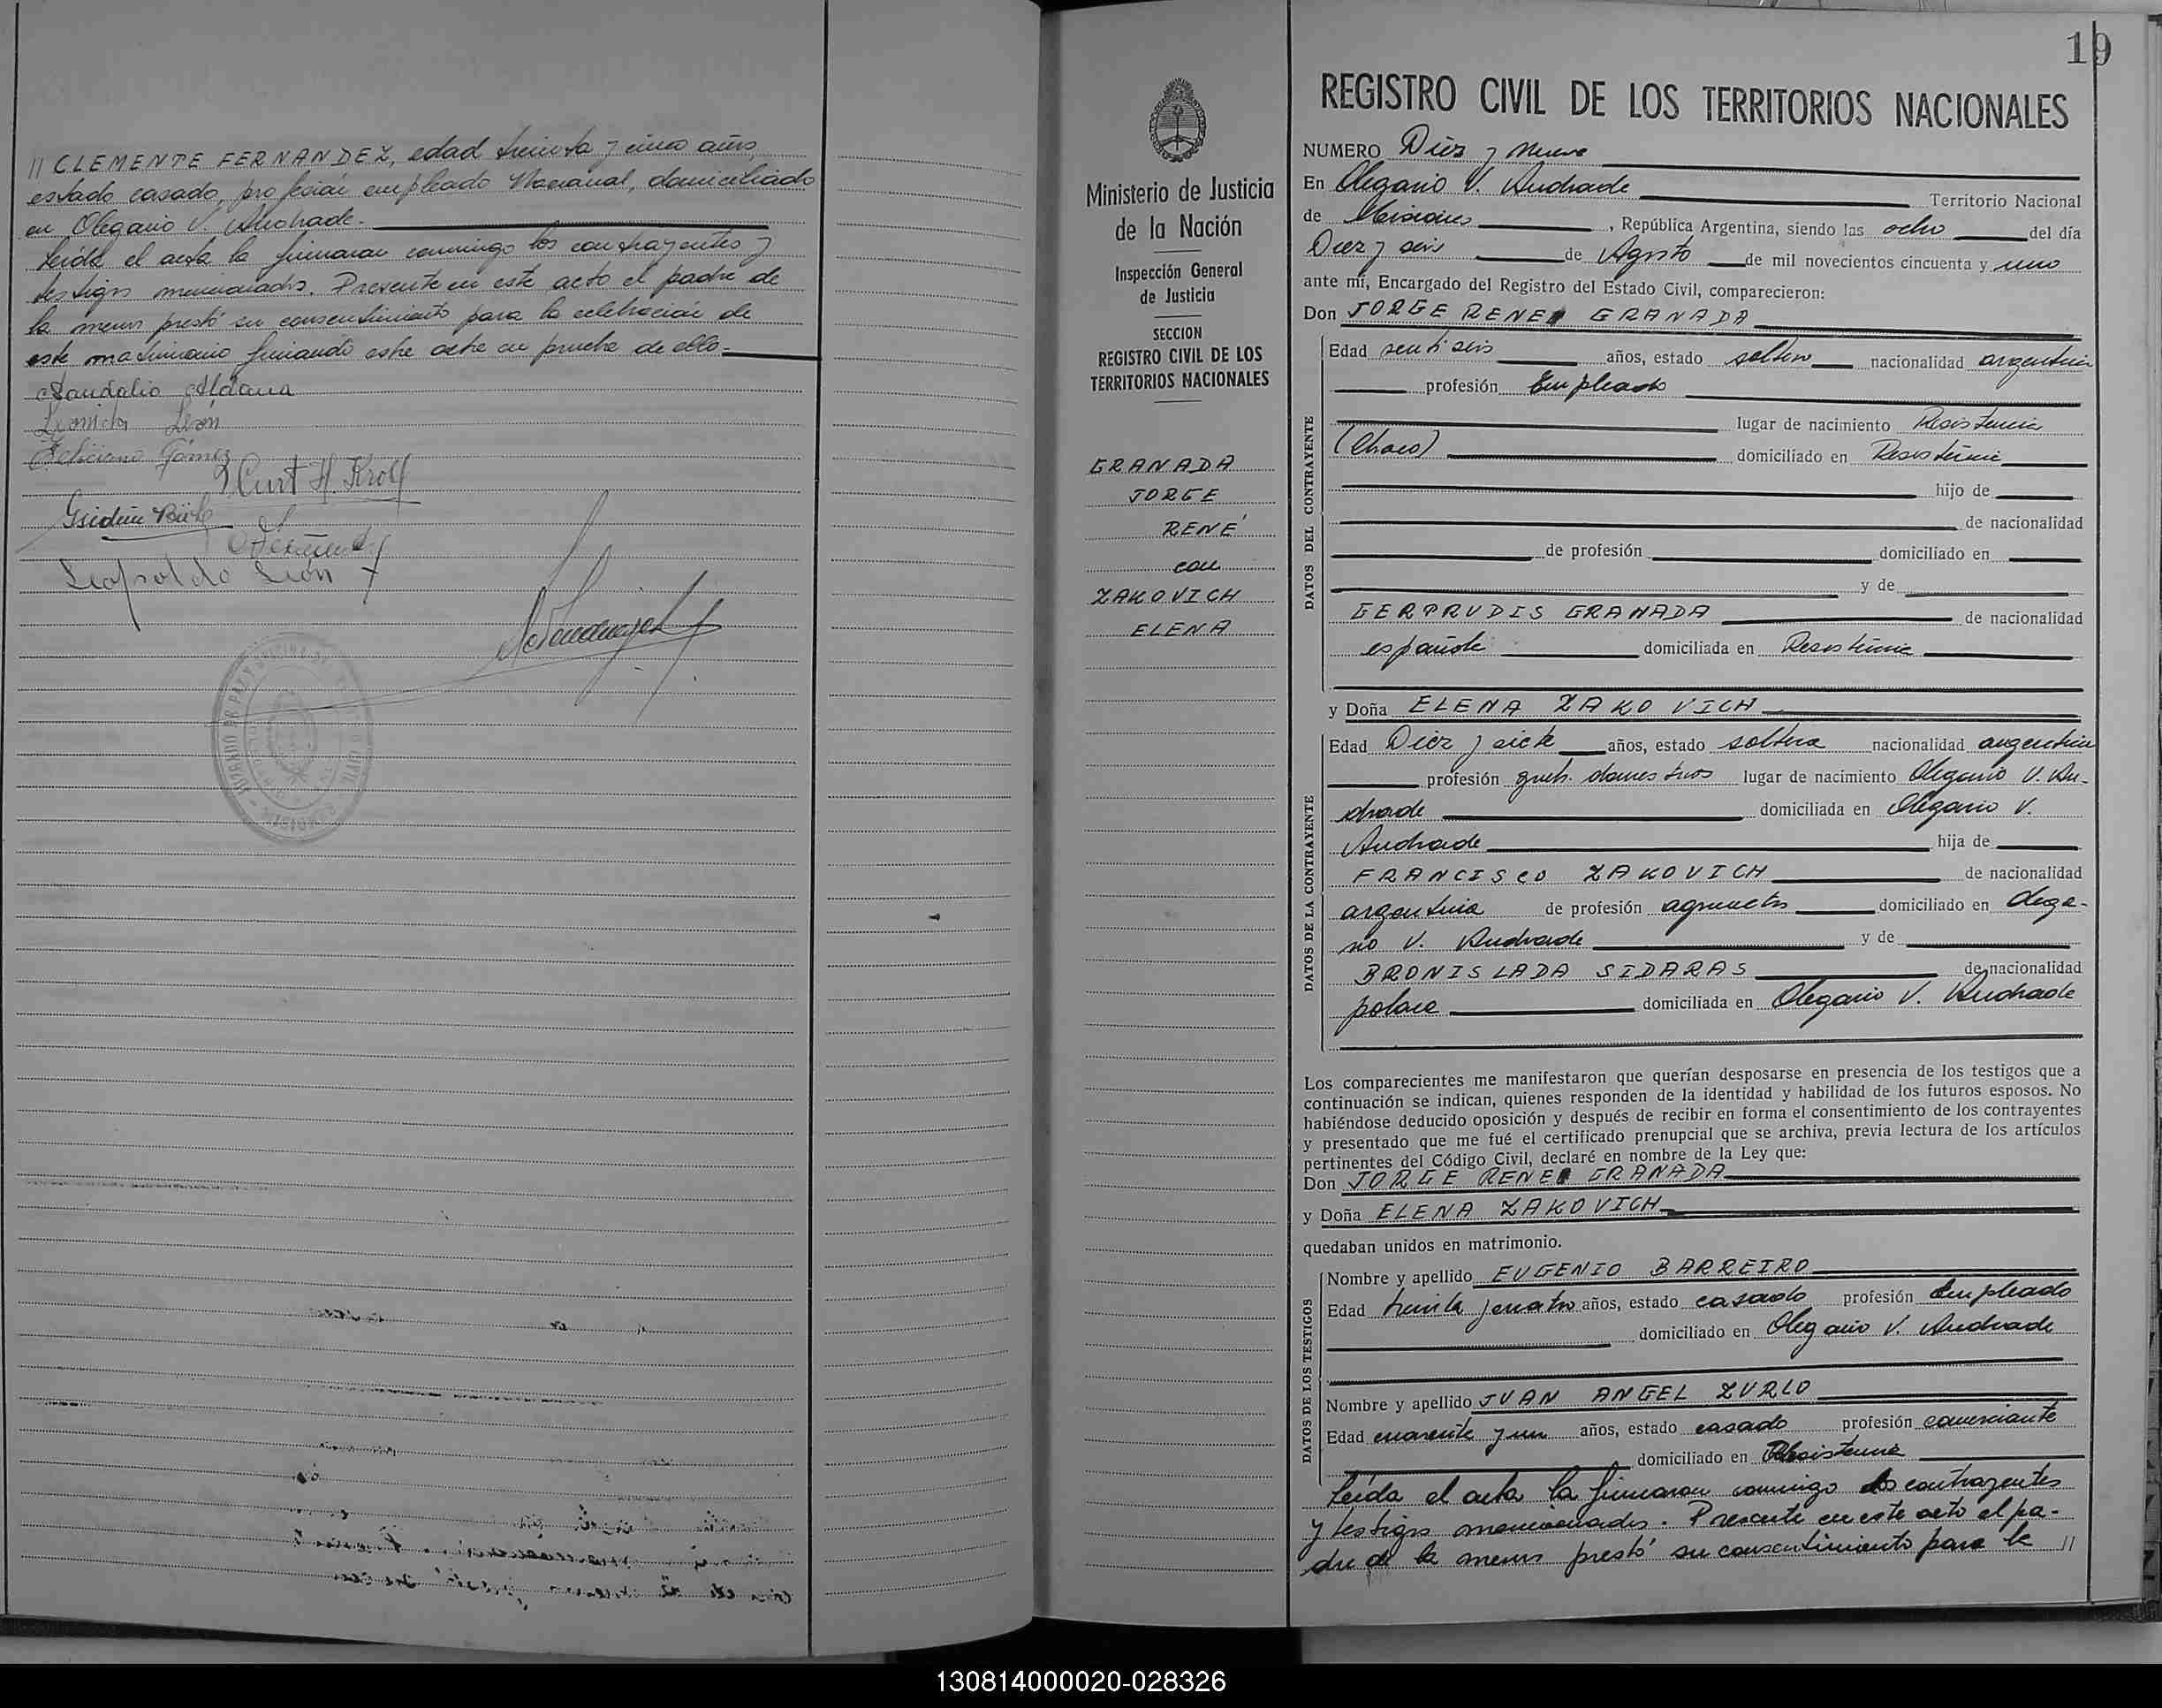 // CLEMENTE FERNANDEZ, edad treinta y cinco años,
estado casado, profesión empleado Nacional, domiciliado
en Olegario V. Andrade.
Leída el acta la firmaron conmigo los contrayentes y
testigos mencionados. Presente en este acto el padre de
la menor prestó su consentimiento para la celebración de
este matrimonio firmando esta acta en prueba de ello.-
Sandalio Aldana
León
Feliciano Gómez
Kurt H. Kroll
Leopoldo León
Ministerio de Justicia
de la Nación
Inspección General
de Justicia
SECCION
REGISTRO CIVIL DE LOS
TERRITORIOS NACIONALES
GRANADA
JORGE
RENÉ
con
ZAKOVICH
ELENA
19
REGISTRO CIVIL DE LOS TERRITORIOS NACIONALES
NUMERO Diez y nueve
En Olegario V. Andrade Territorio Nacional
de Misiones, República Argentina, siendo las ocho del día
Diez y seis de Agosto de mil novecientos cincuenta y uno
ante mí, Encargado del Registro del Estado Civil, comparecieron:
Don JORGE RENE GRANADA
DATOS DEL CONTRAYENTE
Edad veintiseis años, estado soltero nacionalidad argentina
profesión Empleado
lugar de nacimiento Resistencia
(Chaco) domiciliado en Resistencia
hijo de
de nacionalidad
de profesión domiciliado en
y de
GERTRUDIS GRANADA de nacionalidad
española domiciliada en Resistencia
y Doña ELENA ZAKOVICH
DATOS DE LA CONTRAYENTE
Edad Diez y siete años, estado soltera nacionalidad argentina
profesión queh. domesticos lugar de nacimiento Olegario V. An-
drade domiciliada en Olegario V.
Andrade hija de
FRANCISCO ZAKOVICH de nacionalidad
argentina de profesión agricultor domiciliado en Olega-
rio V. Andrade y de
BRONISLADA SIDARAS de nacionalidad
polaca domiciliada en Olegario V. Andrade
Los comparecientes me manifestaron que querían desposarse en presencia de los testigos que a
continuación se indican, quienes responden de la identidad y habilidad de los futuros esposos. No
habiéndose deducido oposición y después de recibir en forma el consentimiento de los contrayentes
y presentado que me fué el certificado prenupcial que se archiva, previa lectura de los artículos
pertinentes del Código Civil, declaré en nombre de la Ley que:
Don JORGE RENE GRANADA
y Doña ELENA ZAKOVICH
quedaban unidos en matrimonio.
DATOS DE LOS TESTIGOS
Nombre y apellido EUGENIO BARREIRO
Edad treinta y cuatro años, estado casado profesión Empleado
domiciliado en Olegario V. Andrade
Nombre y apellido JUAN ANGEL ZURLO
Edad cuarenta y un años, estado casado profesión comerciante
domiciliado en Resistencia
Leída el acta la firmaron conmigo los contrayentes
y testigos mencionados. Presente en este acto el pa-
dre de la menor prestó su consentimiento para la //
130814000020-028326